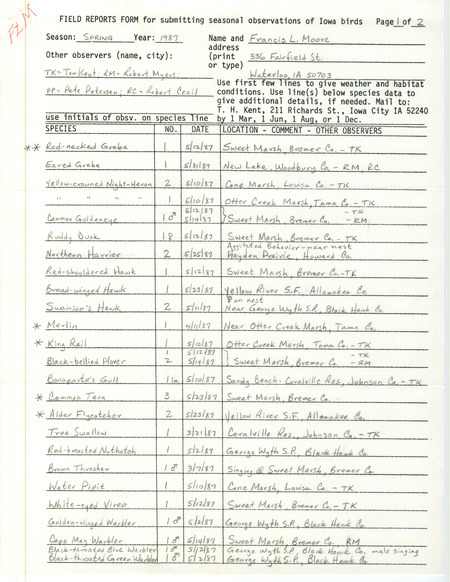 FLM
FIELD REPORTS FORM for submitting seasonal observations of Iowa birds Page 1 of 2
Season: SPRING Year: 1987 Name and Francis L. Moore
address
Other observers (name, city): (print 336 Fairfield St.
or type)
TK=Tom Kent; RM=Robert Myers Waterloo, IA 50703
PP=Pete Petersen; RC=Robert Cecil
Use first few lines to give weather and habitat
conditions. Use line(s) below species data to
give additional details, if needed. Mail to:
T. H. Kent, 211 Richards St., Iowa City IA 52240
use initials of obsv. on species line by 1 Mar, 1 Jun, 1 Aug, or 1 Dec.
SPECIES NO. DATE LOCATION - COMMENT - OTHER OBSERVERS
** Red-necked Grebe 1 5/12/87 Sweet Marsh, Bremer Co. - TK
Eared Grebe 1 5/21/87 New Lake, Woodbury Co. - RM, RC
Yellow-crowned Night-Heron 2 5/10/87 Cone Marsh, Louisa Co. - TK
" " " 1 5/10/87 Otter Creek Marsh, Tama Co. - TK
Common Goldeneye 1♂ 5/12/87 - TK
5/14/87 } Sweet Marsh, Bremer Co. - RM
Ruddy Duck 18 5/12/87 Sweet Marsh, Bremer Co. - TK
Agitated Behavior - near nest
Northern Harrier 2 5/25/87 Hayden Prairie, Howard Co.
Red-shouldered Hawk 1 5/12/87 Sweet Marsh, Bremer Co. - TK
Broad-winged Hawk 1 5/23/87 Yellow River S.F., Allamakee Co.
♀ on nest
Swainson's Hawk 2 5/11/87 Near George Wyth S.P., Black Hawk Co.
* Merlin 1 4/11/87 Near Otter Creek Marsh, Tama Co.
* King Rail 1 5/10/87 Otter Creek Marsh, Tama Co. - TK
1 5/12/87 - TK
Black-bellied Plover 2 5/14/87 } Sweet Marsh, Bremer Co. - RM
Bonaparte's Gull 1 im. 5/10/87 Sandy Beach - Coralville Res, Johnson Co. - TK
* Common Tern 3 5/23/87 Sweet Marsh, Bremer Co.
* Alder Flycatcher 2 5/23/87 Yellow River S.F., Allamakee Co.
Tree Swallow 1 3/21/87 Coralville Res., Johnson Co. - TK
Red-breasted Nuthatch 1 5/2/87 George Wyth S.P., Black Hawk Co.
Brown Thrasher 1♂ 3/7/87 Singing @ Sweet Marsh, Bremer Co.
Water Pipit 1 5/10/87 Cone Marsh, Louisa Co. - TK
White-eyed Vireo 1 5/12/87 Sweet Marsh, Bremer Co. - TK
Golden-winged Warbler 1♂ 5/2/87 George Wyth S.P., Black Hawk Co.
Cape May Warbler 1♂ 5/14/87 Sweet Marsh, Bremer Co. RM
Black-throated Blue Warbler 1♂ 5/12/87 George Wyth S.P., Black Hawk Co. male singing
Black-throated Green Warbler 1♂ 5/2/87 George Wyth S.P., Black Hawk Co.